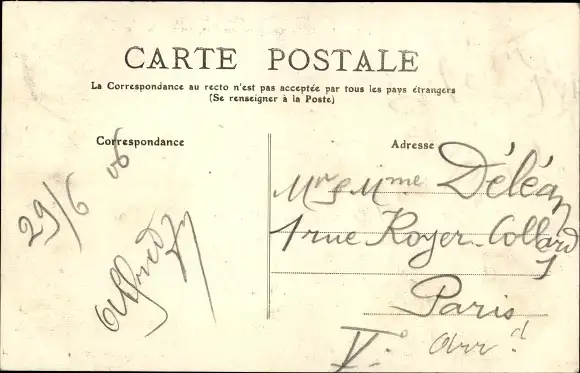 CARTE POSTALE
La Correspondance au recto n'est pas acceptée par tous les pays étrangers
(Se renseigner à la Poste)
Correspondance
29/6 06
Alfred
Adresse
Mr & Mme Déléan
1 rue Royer-Collard
1
Paris
V.° Arr.t